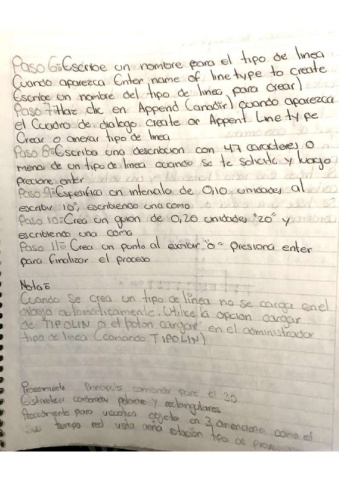 Paso 6= Escribe un nombre para el tipo de linea
Cuando aparezca Enter name of linetype to create
Escribe un nombre del tipo de linea, para crear)
Paso 7= Haz clic en Append (anadir) cuando aparezca
el cuadro de dialogo create or Append Line type
Crear o anexar tipo de linea
Paso 8= Escriba una descripcion con 47 caracteres o
menos de un tipo de linea cuando se te solicite y luego
presione enter
Paso 9= Especifica un intervalo de 0,10 unidades al
escribir 10", escribiendo una coma
Paso 10= Crea un guion de 0,20 unidades "20" y
escribiendo una coma
Paso 11= Crea un punto al escribir "0" presiona enter
para finalizar el proceso
Nota=
Cuando se crea un tipo de línea no se carga en el
dibujo automaticamente. Utilice la opcion cargar
de TIPOLIN o el boton cargar en el administrador
tipo de linea (comando TIPOLIN)
comandos para el 3D
y rectangulares
para objeto en 3
tiempo real vista